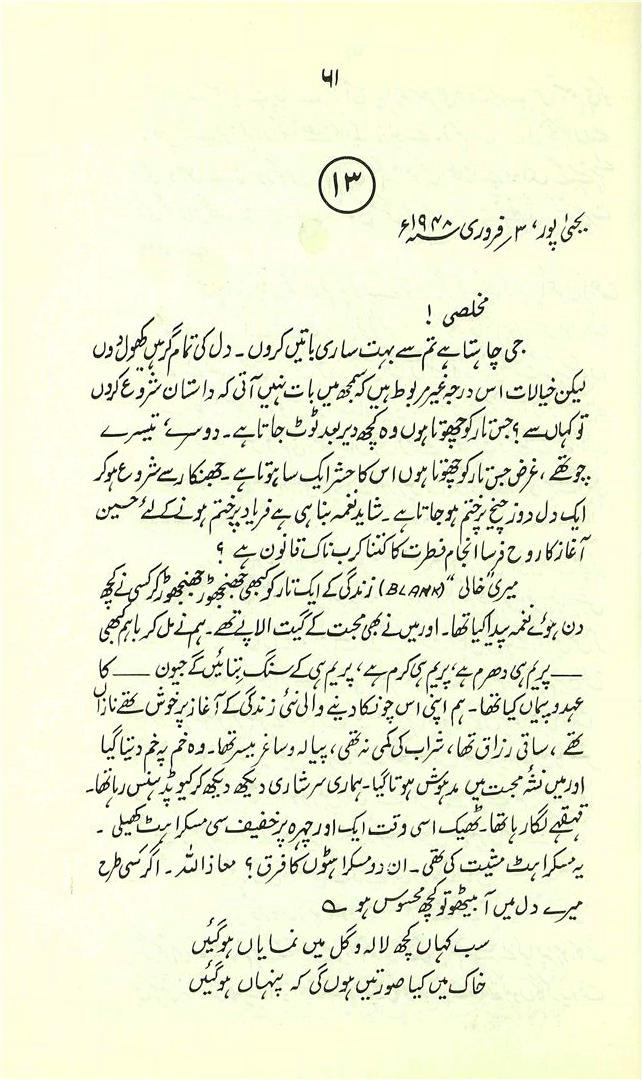 ۶۱
۱۳
یحییٰ پور، ۳؍ فروری سنہ ۱۹۴۸ء
مخلصی !
جی چاہتا ہے تم سے بہت ساری باتیں کروں ۔ دل کی تمام گرہیں کھول دوں
لیکن خیالات اس درجہ غیر مربوط ہیں کہ سمجھ میں بات نہیں آتی کہ داستان شروع کردوں
تو کہاں سے ؟ جس تار کو چھوتا ہوں وہ کچھ دیر بعد ٹوٹ جاتا ہے ۔ دوسرے، تیسرے
چوتھے ، غرض جس تار کو چھوتا ہوں اس کا حشر ایک سا ہوتا ہے ۔ جھنکار سے شروع ہو کر
ایک دل دوز چیخ پر ختم ہو جاتا ہے ۔ شاید نغمہ بنا ہی ہے فریاد پر ختم ہونے کے لئے حسین
آغاز کا روح فرسا انجام فطرت کا کتنا کرب ناک قانون ہے ؟
میری "خالی" (BLANK) زندگی کے ایک تار کو کبھی جھنجھوڑ جھنجھوڑ کر کسی نے کچھ
دن ہوئے نغمہ پیدا کیا تھا ۔ اور میں نے بھی محبت کے گیت الاپے تھے ۔ ہم نے مل کر باہم کبھی
— پریم ہی دھرم ہے، پریم ہی کرم ہے ، پریم ہی کے سنگ بتائیں گے جیون — کا
عہد و پیماں کیا تھا ۔ ہم اپنی اس چونکا دینے والی نئی زندگی کے آغاز پر خوش تھے نازاں
تھے ، ساقی رزاق تھا ، شراب کی کمی نہ تھی ، پیالہ و ساغر میسر تھا ۔ وہ خم پہ خم دیتا گیا
اور میں نشۂ محبت میں مدہوش ہوتا گیا ۔ ہماری سرشاری دیکھ دیکھ کر کیوپڈ ہنس رہا تھا ۔
قہقہے لگا رہا تھا ۔ ٹھیک اسی وقت ایک اور چہرہ پر خفیف سی مسکراہٹ کھیلی ۔
یہ مسکراہٹ مشیت کی تھی ۔ ان دو مسکراہٹوں کا فرق ؟ معاذ اللہ ۔ اگر کسی طرح
میرے دل میں آ بیٹھو تو کچھ محسوس ہو ؎
سب کہاں کچھ لالہ و گل میں نمایاں ہو گئیں
خاک میں کیا صورتیں ہوں گی کہ پنہاں ہو گئیں